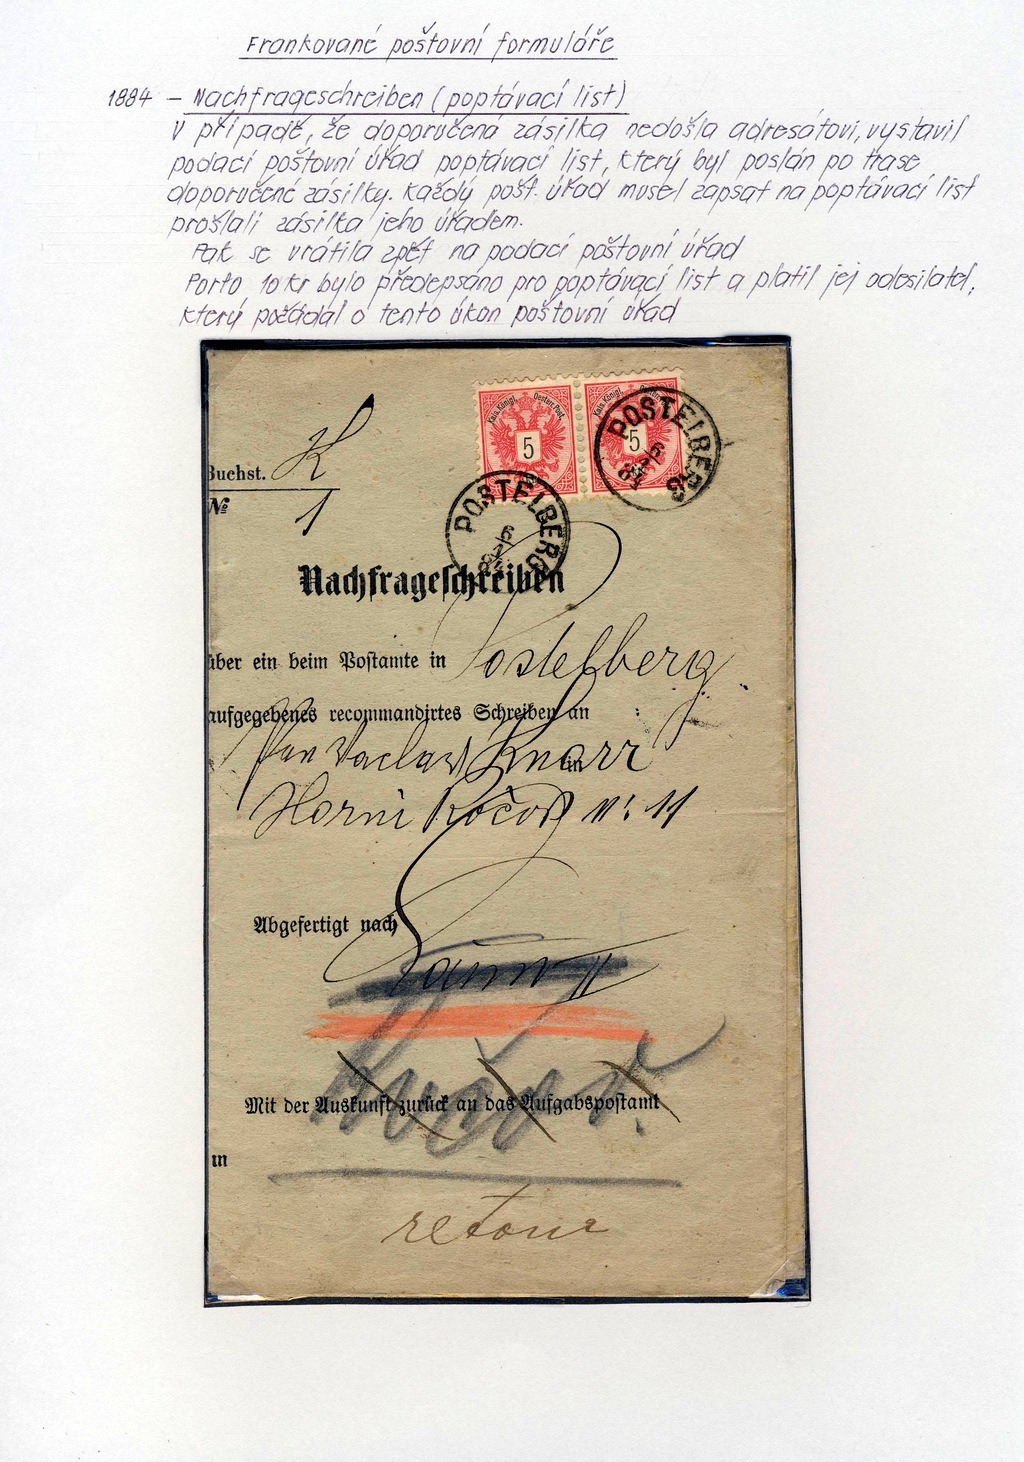 Frankované poštovní formuláře
1884 - Nachfrageschreiben (poptávací list)
V případě, že doporučená zásilka nedošla adresátovi, vystavil
podací poštovní úřad poptávací list, který byl poslán po trase
doporučené zásilky. Každý pošt. úřad musel zapsat na poptávací list
prošlali zásilka jeho úřadem.
Pak se vrátila zpět na podací poštovní úřad
Porto 10 kr bylo předepsáno pro poptávací list a platil jej odesilatel,
který požádal o tento úkon poštovní úřad
Kais. Königl. Oesterr. Post.
5
Kais. Königl.
5
POSTELBERG
POSTELBERG
Buchst. K
№ 1
Nachfrageschreiben
über ein beim Postamte in Postelberg
aufgegebenes recommandirtes Schreiben an
Pan Vaclav Knorr
in
Horni Ročov N: 11
Abgefertigt nach
Laun
Mit der Auskunft zurück an das Aufgabspostamt
in
retour